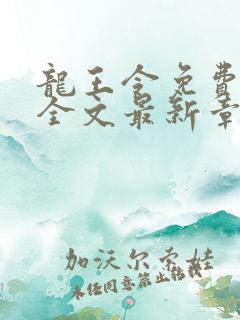 龍王令免費
全文最新章
加沃尔雫娃
未经同意禁止转载